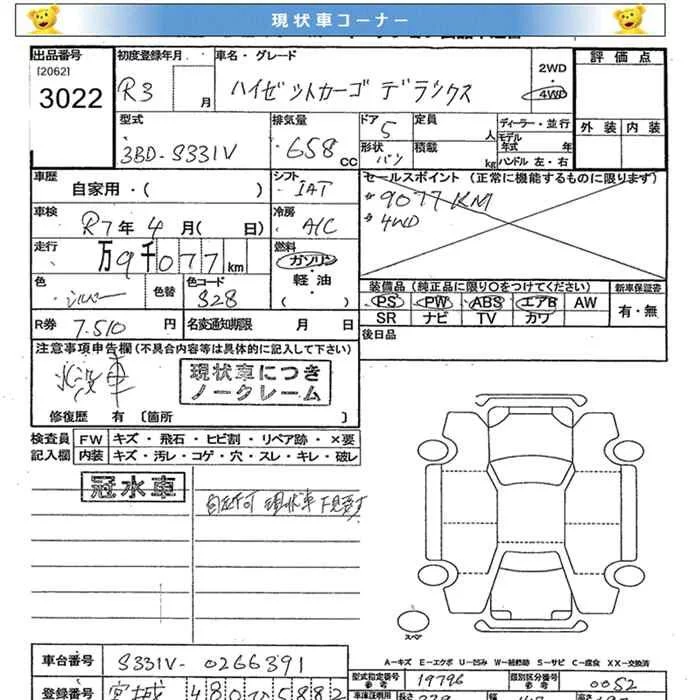 現状車コーナー
出品番号
[2062]
3022
初度登録年月
R3 月
車名・グレード
ハイゼットカーゴ デラックス
2WD
・
4WD
評価点
外装 内装
型式
3BD-S331V
排気量
658 CC
ドア
5
形状
バン
定員
人
積載
kg
ディーラー・並行
モデル年式 年
ハンドル 左・右
車歴
自家用・( )
シフト
IAT
セールスポイント (正常に機能するものに限ります)
*9077KM
*4WD
車検
R7年4月( 日)
冷房
A/C
走行
万9千077km
燃料
ガソリン
・
軽油
・
( )
色
シルバー
色替
色コード
S28
装備品(純正品に限り○をつけてください)
PS PW ABS エアB AW
SR ナビ TV カワ
新車保証書
有・無
R券 7,510 円
名変通知期限 月 日
後日品
注意事項申告欄(不具合内容等は具体的に記入して下さい)
水没車
現状車につき
ノークレーム
修復歴 有 〔箇所 〕
検査員
記入欄
FW キズ・飛石・ヒビ割・リペア跡・×要
内装 キズ・汚レ・コゲ・穴・スレ・キレ・破レ
冠水車
自走不可 現状車 下見要す
スペア
A-キズ E-エクボ U-凹み W-補修跡 S-サビ C-腐食 XX-交換済
車台番号 S331V-0266391
型式指定番号
参考
19796
類別区分番号
参考
0052
登録番号 宮城 480 5882
車庫証明用
長さ
幅
高さ